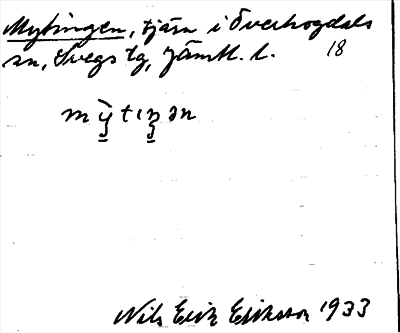 Mytingen, tjärn i Överhogdals
sn, Svegs tg, Jämtl. l. 18
mỳtıŋən
Nils Erik Eriksson 1933